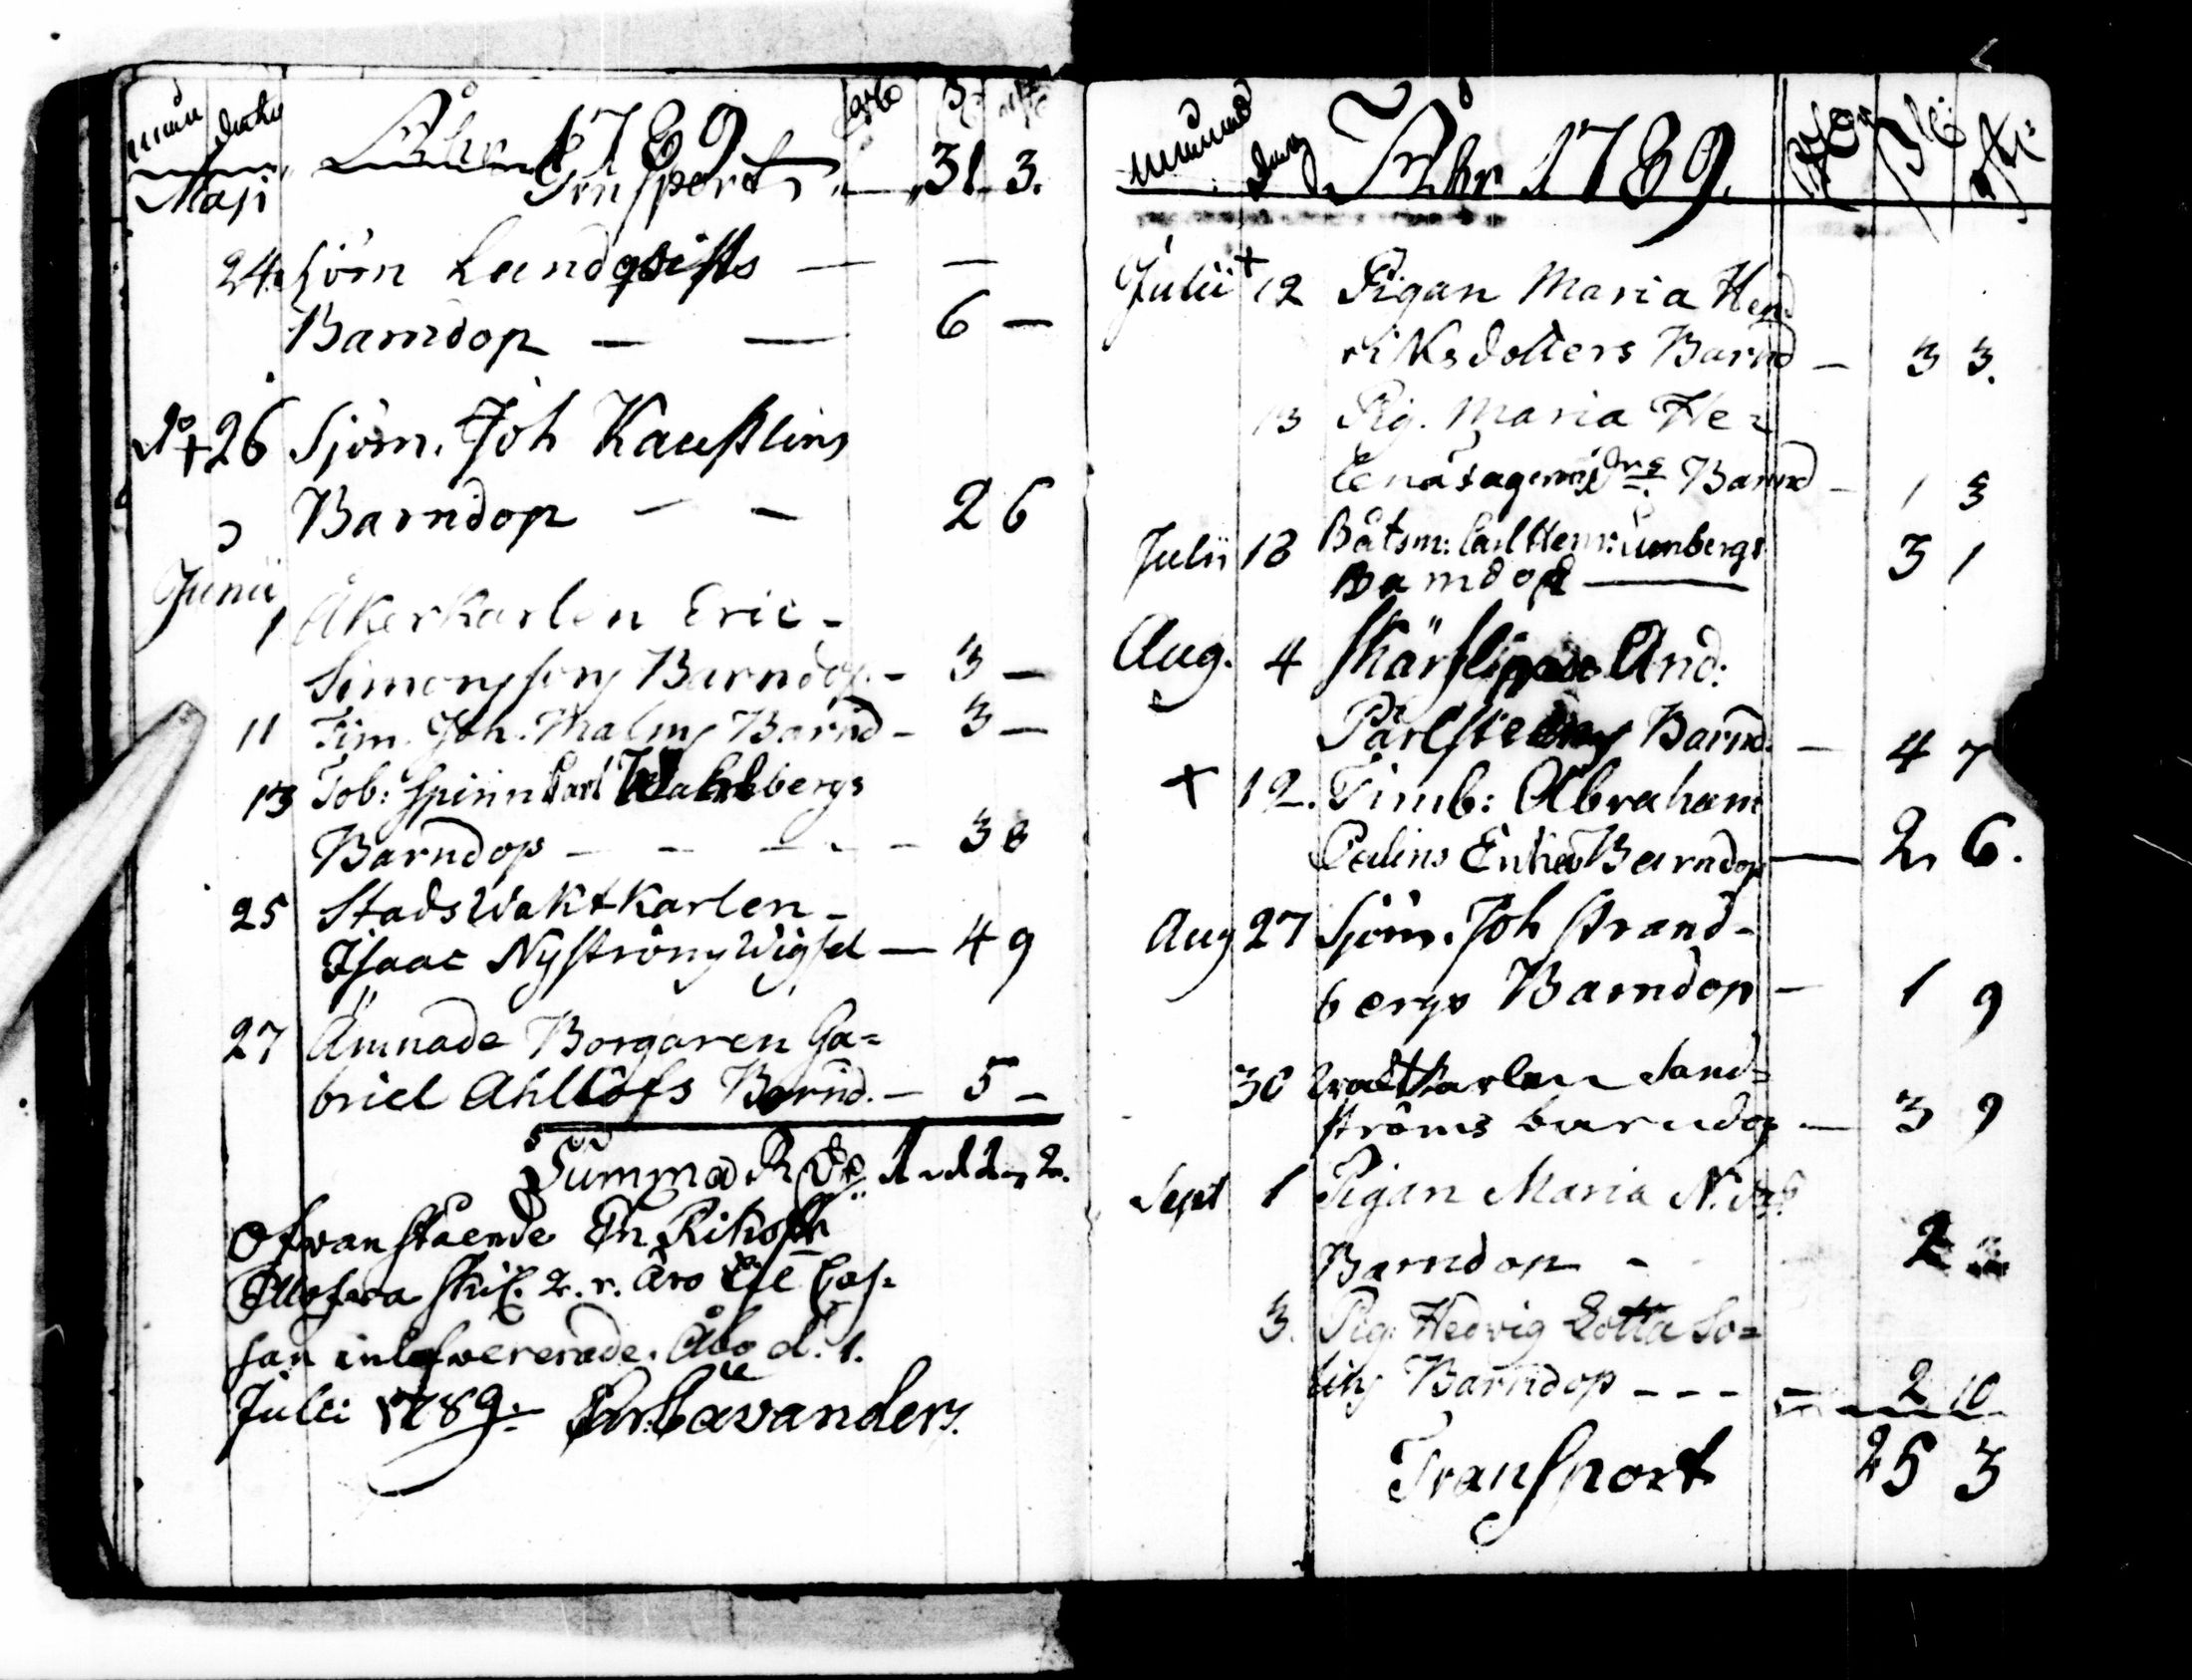 Åhr 1789
Maji Transport 31 3.
24. Sjöm Lundqvists — —
Barndop — — 6 —
do + 26 Sjöm. Joh Kaufslins
Barndop — — 2 6
Junii
1 Åkerkarlen Eric -
Simonssons Barndop. - 3 —
11 Tim. Joh. Malms Barnd - 3 —
13 Tob: Spinn Karl Wahlbergs
Barndop — — — - - 3 8
25 StadsWaktKarlen -
Isaac Nyströms Wigsel — 4 9
27 Ämnade Borgaren Ga=
briel Ahllöfs Barnd. — 5 -
Summa R dr. 1 " 11 " 2.
Ofvanstående En Riksdr
Ellofva Skil. 2. r. äro till Cas=
san inlefvererade. Åbo d. 1.
Julii 1789. Cavanders.
Månad dag Åhr 1789.
Julii + 12 Pigan Maria Hend
riksdotters Barnd — 3 3.
13 Pig. Maria He=
lena drs Barnd - 1 3
Julii 18 Båtsm: Carl Henr: Limbergs
Barndop — 3 1
Aug. 4 Skärslipare And:
Pärlstens Barnd. — 4 7
+ 12. Timb: Abraham
Palins Enkas Barndop — 2 6.
Aug 27 Sjöm. Joh Strand-
bergs Barndop - 1 9
30 Waktkarlen Sand=
ströms barndop — 3 9
Sept 1 Pigan Maria N. drs
Barndop - 2
3. Pig: Hedvig Lotta So=
lins Barndop - - - - 2 10
Transport 25 3